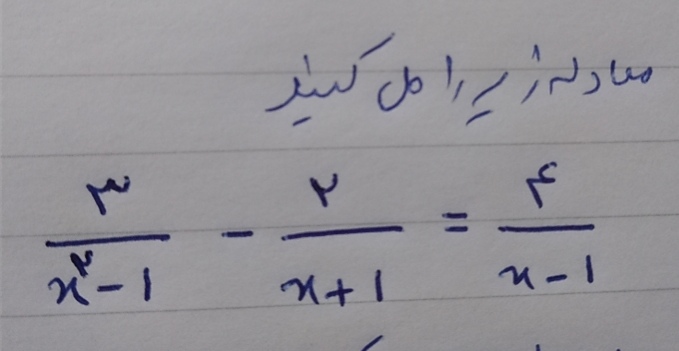 معادله زیر را حل کنید
۳/(x^۲ - 1) - ۲/(x + 1) = ۴/(x - 1)